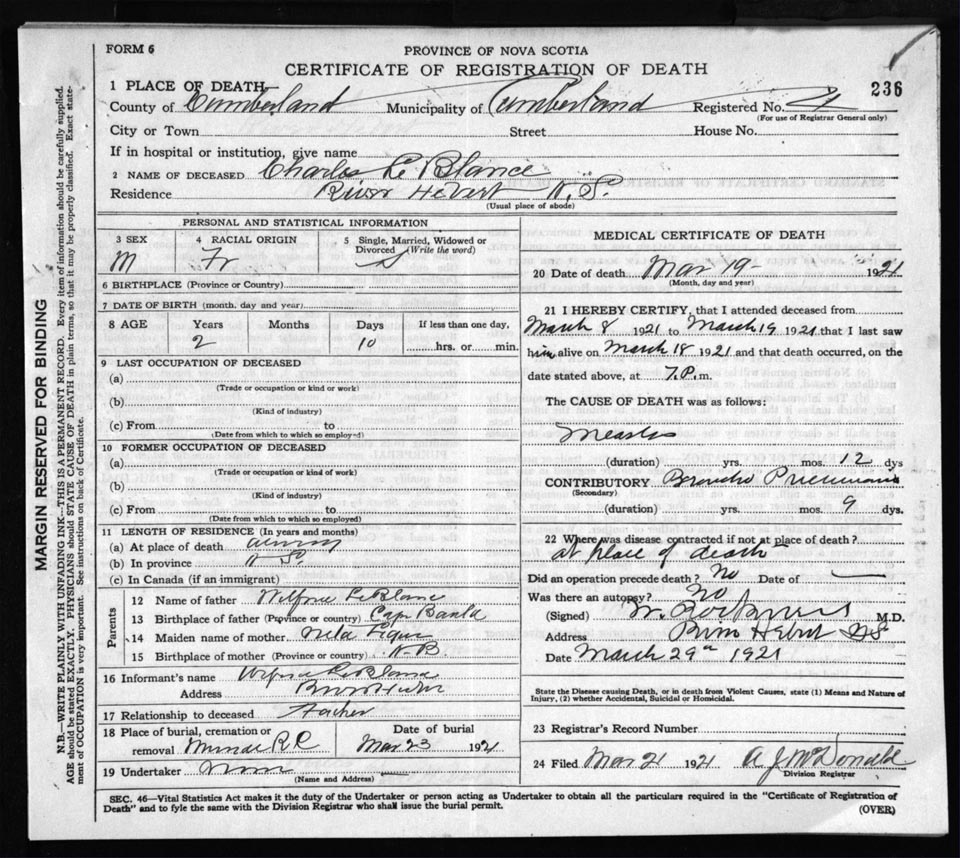 FORM 6
PROVINCE OF NOVA SCOTIA
CERTIFICATE OF REGISTRATION OF DEATH
236
1 PLACE OF DEATH
County of Cumberland Municipality of Cumberland Registered No.
(For use of Registrar General only)
City or Town Street House No.
If in hospital or institution, give name
2 NAME OF DECEASED Charles Le Blance
Residence River Hebert N. S.
(Usual place of abode)
PERSONAL AND STATISTICAL INFORMATION
3 SEX 4 RACIAL ORIGIN 5 Single, Married, Widowed or Divorced (Write the word)
M Fr S
6 BIRTHPLACE (Province or Country)
7 DATE OF BIRTH (month, day and year)
8 AGE Years Months Days If less than one day,
2 10 hrs. or min.
9 LAST OCCUPATION OF DECEASED
(a)
(Trade or occupation or kind or work)
(b)
(Kind of industry)
(c) From to
(Date from which to which so employed)
10 FORMER OCCUPATION OF DECEASED
(a)
(Trade or occupation or kind of work)
(b)
(Kind of industry)
(c) From to
(Date from which to which so employed)
11 LENGTH OF RESIDENCE (In years and months)
(a) At place of death
(b) In province N S.
(c) In Canada (if an immigrant)
Parents
12 Name of father Wilfred LeBlanc
13 Birthplace of father (Province or country)
14 Maiden name of mother
15 Birthplace of mother (Province or country) N.B.
16 Informant's name Wilfred LeBlanc
Address
17 Relationship to deceased Father
18 Place of burial, cremation or removal Minudie R C
Date of burial
Mar 23 1921
19 Undertaker
(Name and Address)
MEDICAL CERTIFICATE OF DEATH
20 Date of death Mar 19- 1921
(Month, day and year)
21 I HEREBY CERTIFY, that I attended deceased from
March 8 1921 to March 19 1921 that I last saw
him alive on March 18 1921 and that death occurred, on the
date stated above, at 7.P. m.
The CAUSE OF DEATH was as follows:
Measles
(duration) yrs. mos. 12 dys
CONTRIBUTORY Broncho Pneumonia
(Secondary)
(duration) yrs. mos. 9 dys.
22 Where was disease contracted if not at place of death?
at place of death
Did an operation precede death? No Date of
Was there an autopsy? No
(Signed) M.D.
Address River Hebert NS
Date March 29th 1921
State the Disease causing Death, or in death from Violent Causes, state (1) Means and Nature of
Injury, (2) whether Accidental, Suicidal or Homicidal.
23 Registrar's Record Number
24 Filed Mar 21 1921 A J McDonald
Division Registrar
SEC. 46—Vital Statistics Act makes it the duty of the Undertaker or person acting as Undertaker to obtain all the particulars required in the "Certificate of Registration of
Death" and to fyle the same with the Division Registrar who shall issue the burial permit.
(OVER)
MARGIN RESERVED FOR BINDING
N.B.—WRITE PLAINLY WITH UNFADING INK—THIS IS A PERMANENT RECORD. Every item of information should be carefully supplied.
AGE should be stated EXACTLY. PHYSICIANS should STATE CAUSE OF DEATH in plain terms, so that it may be properly classified. Exact state-
ment of OCCUPATION is very important. See instructions on back of Certificate.